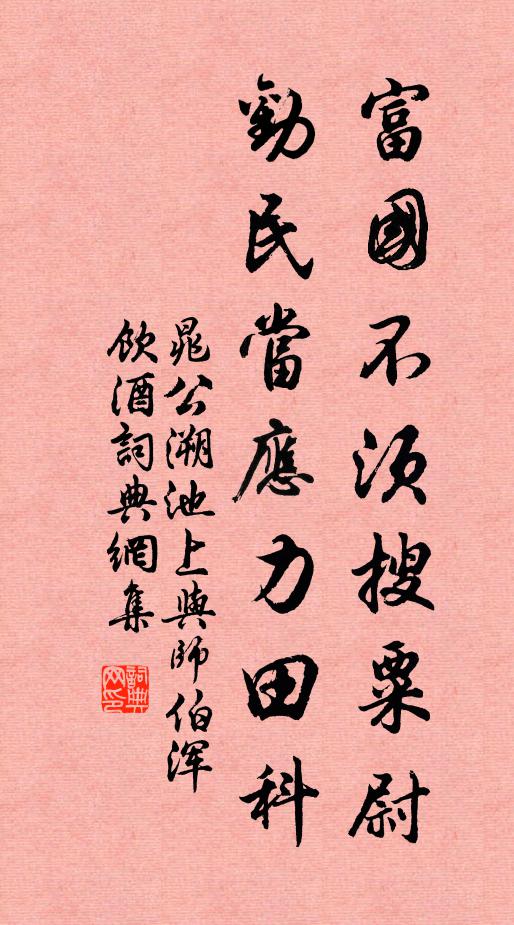 富國不須搜粟尉
勸民當應力田科
晁公溯池上與師伯渾
飲酒詞典網集
詞典
网印